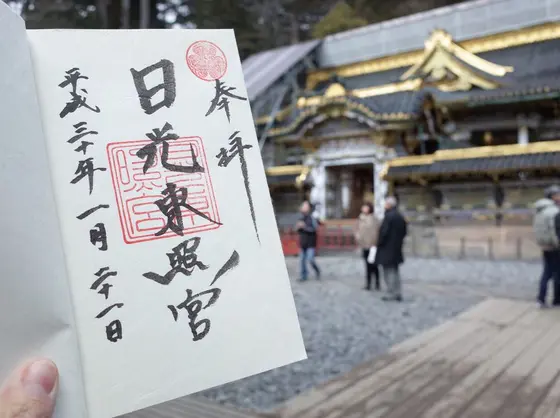 奉拝
日光東照宮
平成三十年一月二十一日